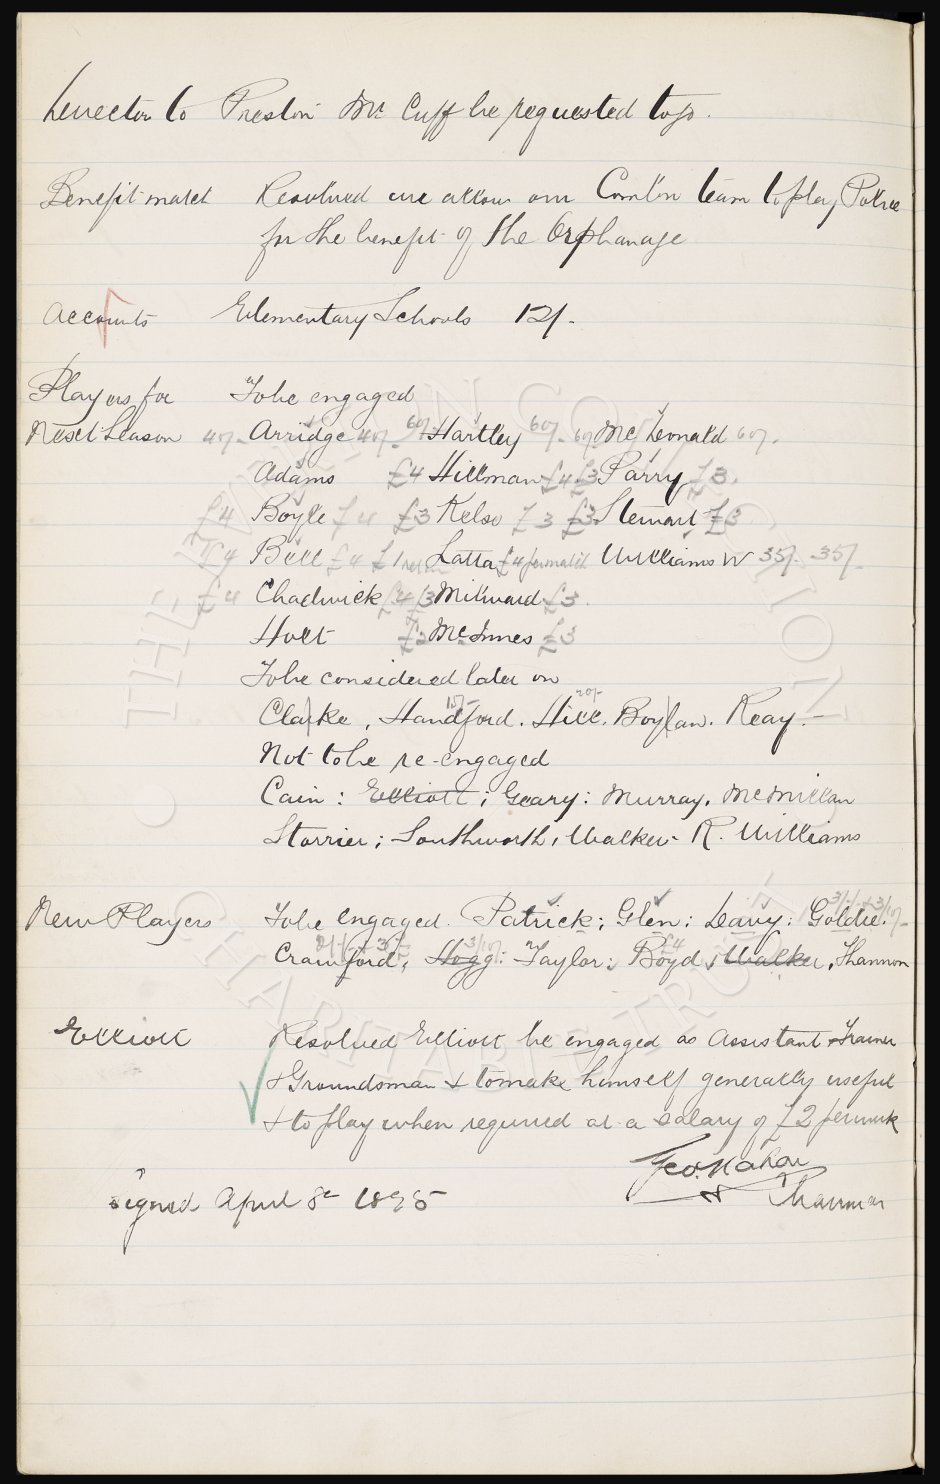 Director to Preston Mr. Cuff be requested to go.
Benefit match Resolved we allow our Comb'n team to play Police
for the benefit of the Orphanage
Accounts Elementary Schools 12/-
Players for To be engaged
Next Season 40/- Arridge 40/- 60/- Hartley 60/- 60/- McDonald 60/-
Adams £4 Hillman £4 £3 Parry £3.
£4 Boyle £4 £3 Kelso £3 £3 Stewart £3
£4 Bell £4 £1 Latta £4 per match Williams W 35/- 35/-
£4 Chadwick £4 £3 Milward £3.
Holt £3 McInnes £3
To be considered later on
Clarke, Handford 15/-. Hill 20/-. Boylan. Reay.-
Not to be re-engaged
Cain: Elliott; Geary: Murray. McMillan
Storrier; Southworth, Walker- R. Williams
New Players To be Engaged. Patrick; Glen; Leavy: Goldie.
Crawford, Hogg 3/10/-: Taylor; Boyd £4, Walker, Shannon
Elliott Resolved Elliott be engaged as Assistant Trainer
& Groundsman & to make himself generally useful
& to play when required at a salary of £2 per week
Geo. Mahon
Signed April 8th 1895 Chairman
THE EVERTON COLLECTION
CHARITABLE TRUST